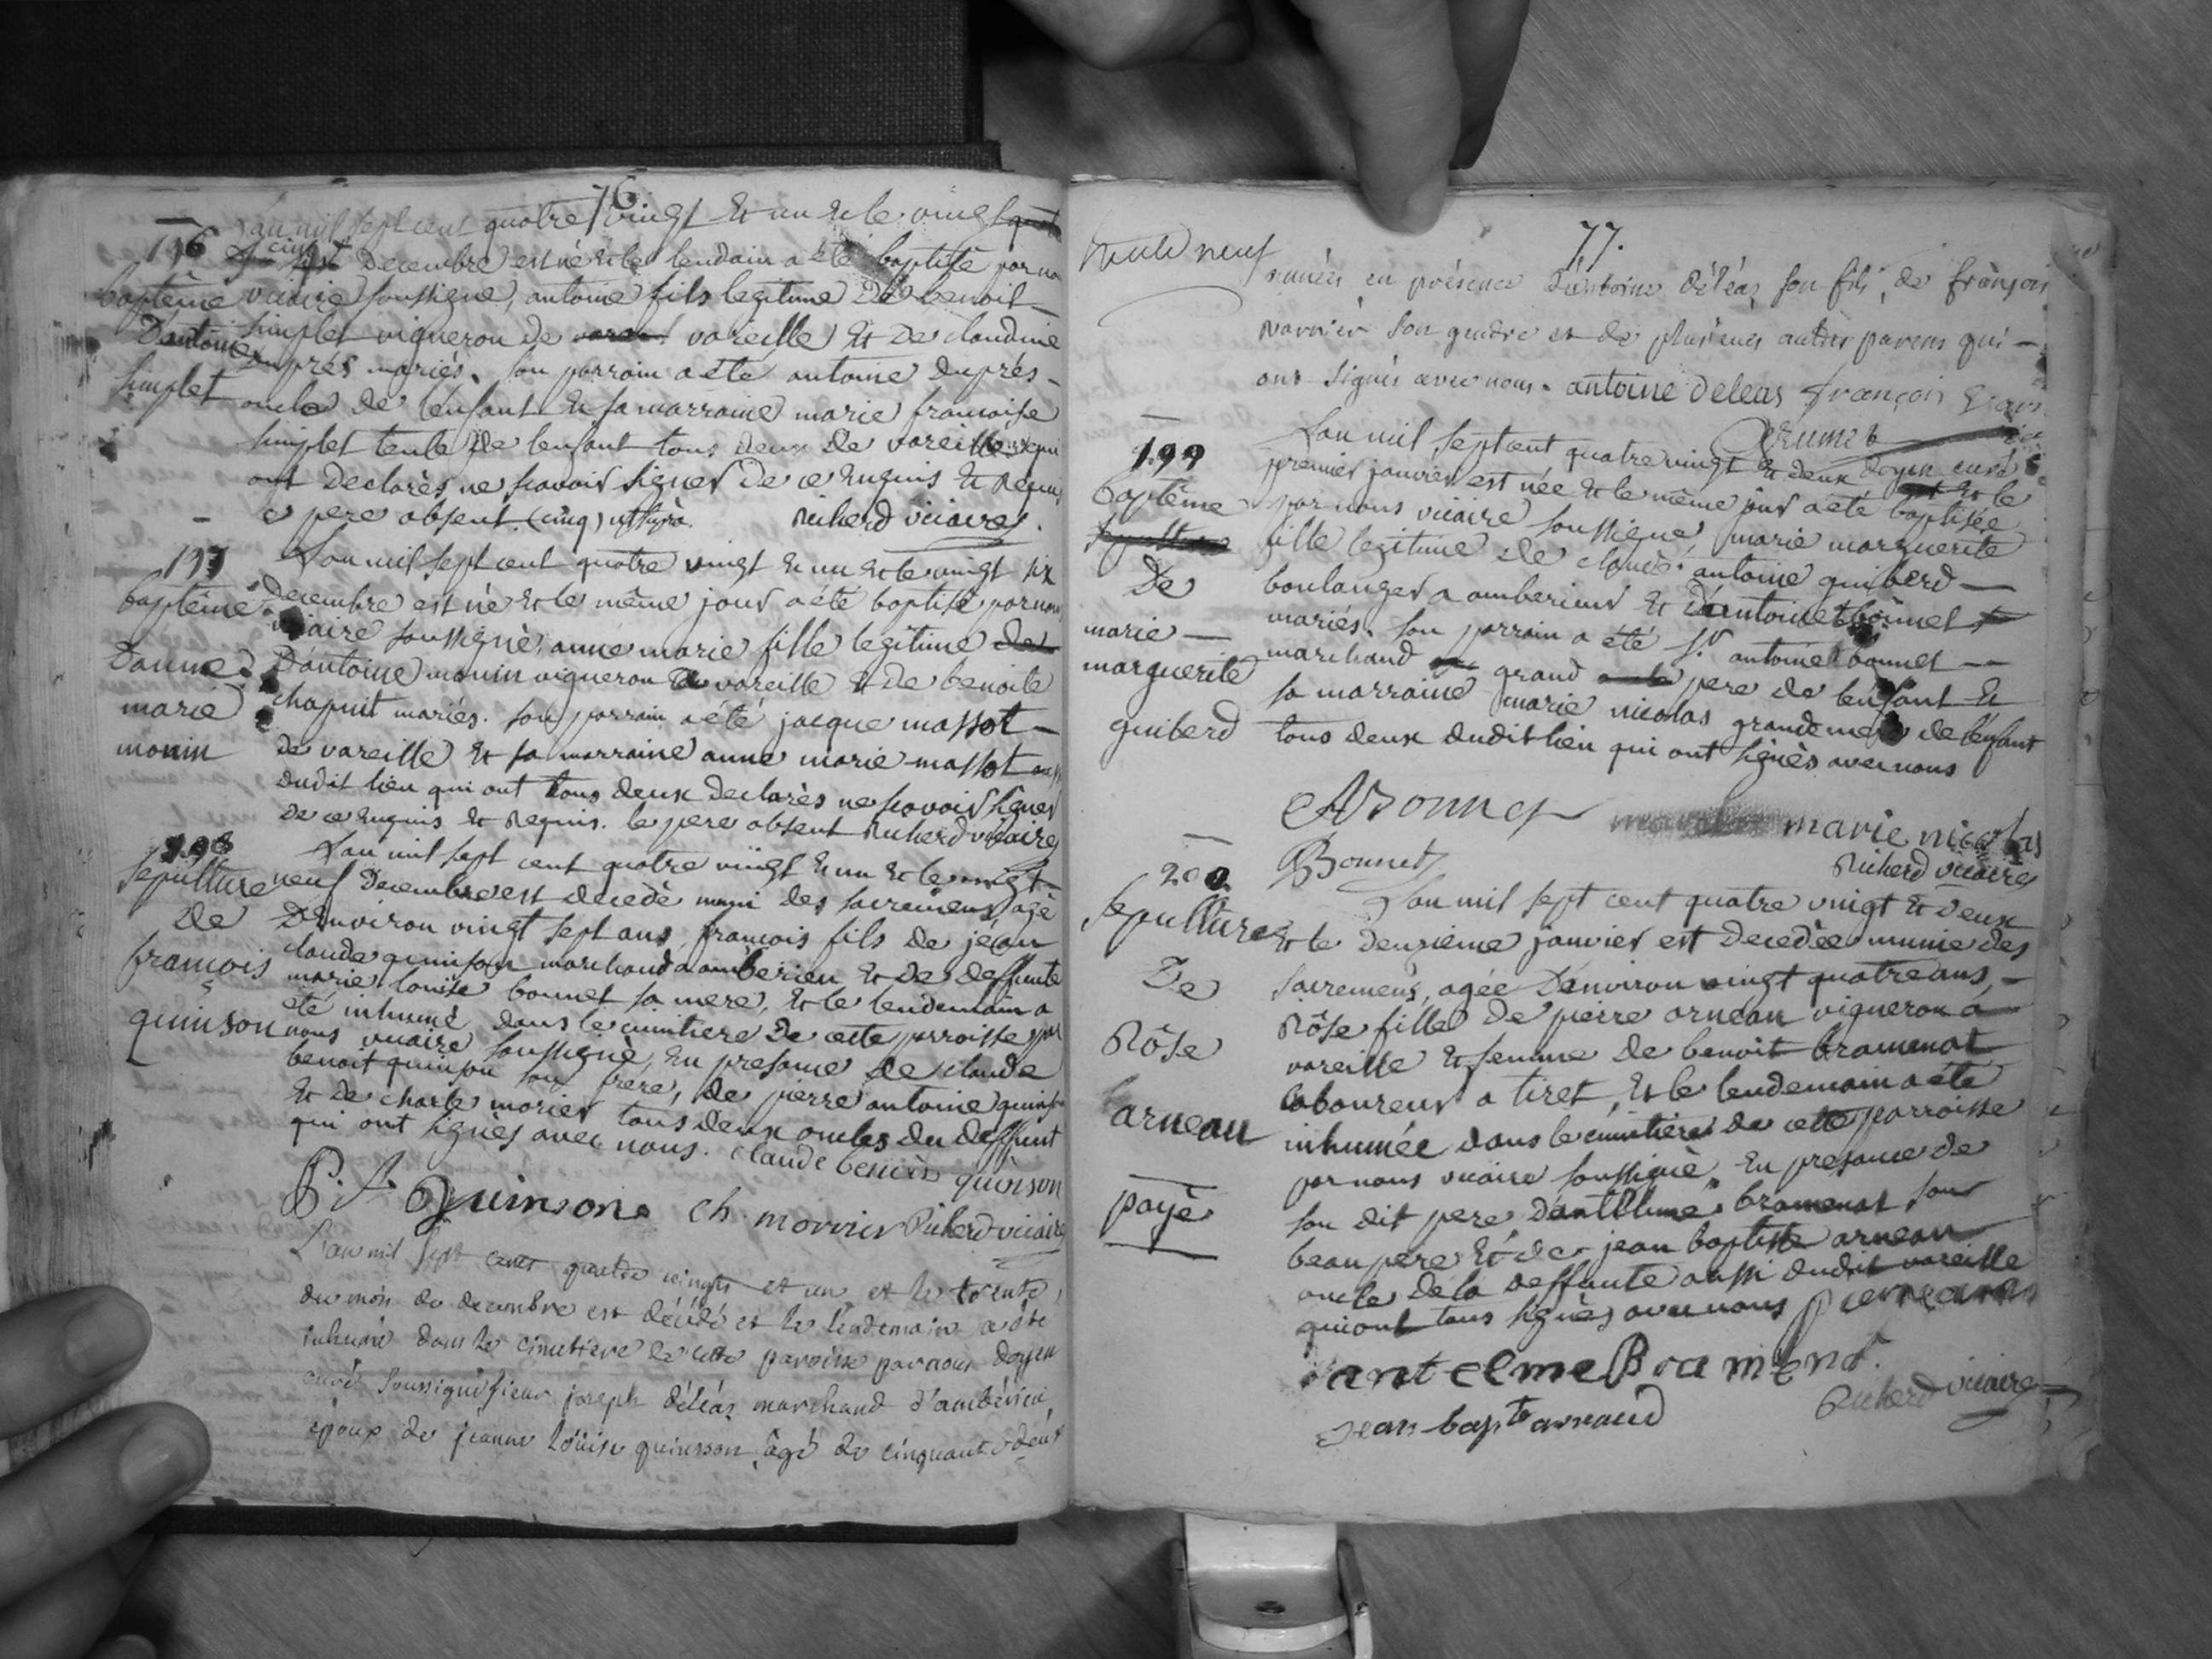 76
L'an mil sept cent quatre vingt et un et le vingt
196
cinq decembre est né et le lendain a été baptisé par nous
baptême vicaire soussigné, antoine fils legitime de benoit
D'antoine simplet vigneron de vareille et de claudine
duprés mariés. son parrain a été antoine duprés
simplet oncle de lenfant et sa marraine marie francoise
simplet tente de lenfant tous deux de vareille qui
ont declarès ne scavoir signer de ce enquis et requis
le pere absent (cinq) Richerd vicaire.
197
L'an mil sept cent quatre vingt et un et le vingt six
baptême decembre est né et le même jour a été baptisé par nous
vicaire soussignè, anne marie fille legitime
D'anne D'antoine monin vigneron a vareille et de benoite
marie chapuit mariés. son parrain a été jacque massot
monin de vareille et sa marraine anne marie massot aussi
dudit lieu qui ont tous deux declarès ne scavoir signer
de ce enquis et requis. le pere absent Richerd vicaire
198
L'an mil sept cent quatre vingt et un et le vingt
sepulture neuf decembre est decedè muni des sacremens agè
de D'environ vingt sept ans, francois fils de jean
francois claude quinson marchand a amberieu et de deffunte
marie louise bonnet sa mere, et le lendemain a
quinson été inhumé dans le cimitiere de cette parroisse par
nous vicaire soussignè, en presance de claude
benoit quinson son frere, de pierre antoine quinson
et de charle morier tous deux oncles du deffunt
qui ont signés avec nous. claude benoit quinson
P. A. Quinson. Ch. morrier Richerd vicaire
L'an mil sept cent quatre vingt et un et le trente
du mois de decembre est décédé et le lendemain a été
inhumé dans le cimetiere de cette paroisse par nous doyen
curé soussigné sieur joseph déléaz marchand d'ambérieu,
époux de jeanne Loüise quinsson, âgé de cinquante deux
77.
feuillet neuf
années en présence d'antoine déléaz son fils, de françois
varnier son gendre et de plusieurs autres parens qui
ont signés avec nous. antoine deleas françois
doyen curé
199
L'an mil sept cent quatre vingt et deux et le
baptême premier janvier est née et le même jour a été baptisée
par nous vicaire soussigné, marie marguerite
De fille legitime de claude antoine guiberd
boulanger a amberieu et d'antoinet bonnet
marie mariés. son parrain a été sr. antoine bonnet
marguerite marchand grand pere de lenfant et
sa marraine marie nicolas grande mere de lenfant
guiberd tous deux dudit lieu qui ont signès avec nous
A Bonnet marie nicolas
Bonnet Richerd vicaire
200
L'an mil sept cent quatre vingt et deux
sepulture et le deuxième janvier est decedèe munie des
De sacremens, agée D'environ vingt quatre ans,
Rôse Rôse fille de pierre arneau vigneron a
vareille et femme de benoit bramenat
arneau laboureur a tiret, et le lendemain a été
inhumée dans le cimitiere de cette parroisse
payè par nous vicaire soussignè. En presance de
son dit pere d'anthelme bramenat son
beau pere et de jean baptiste arneau
oncle de la deffunte aussi dudit vareille
qui ont tous signès avec nous pierre arneau
antelme Bramend.
jean bapte arnaud Richerd vicaire